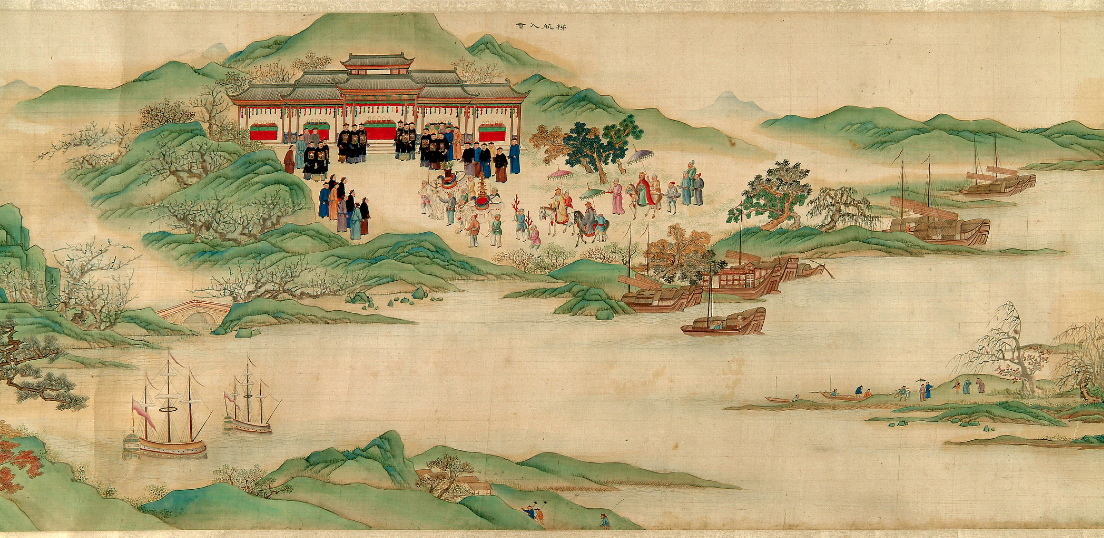 梯航入貢